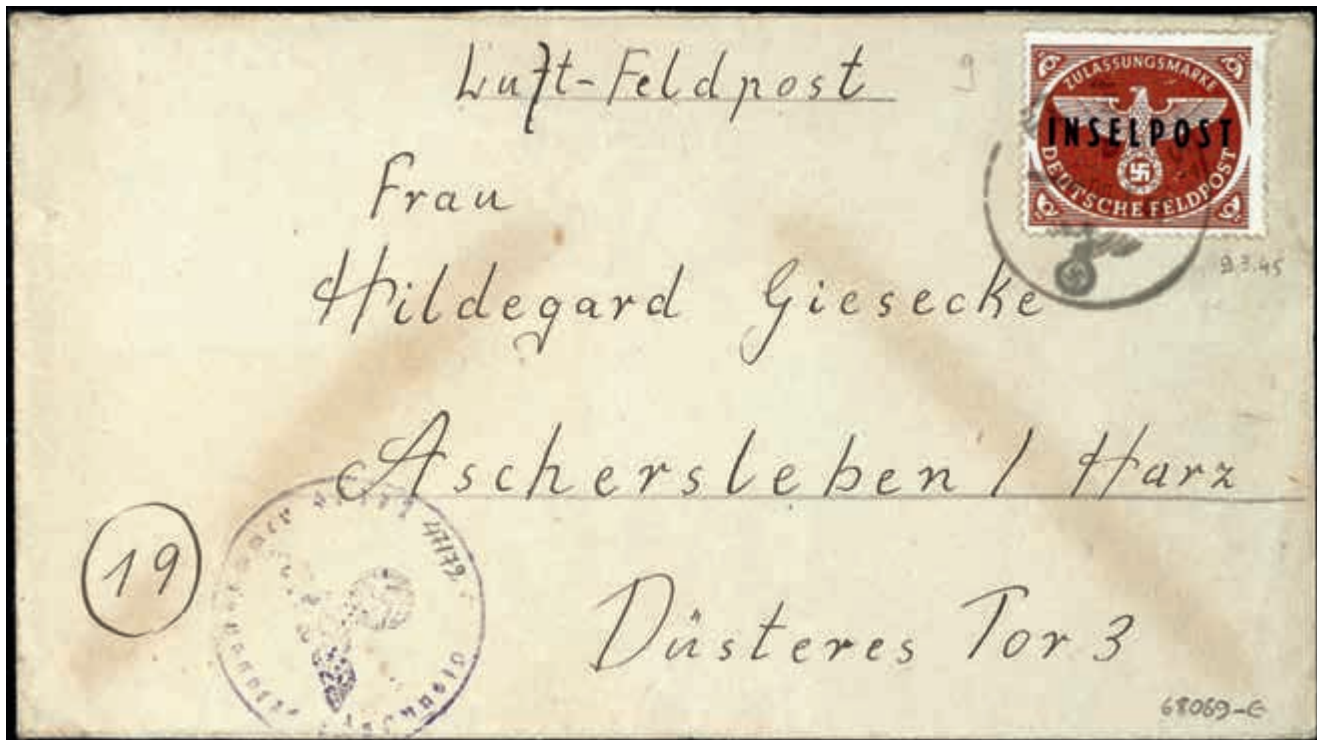 Luft-Feldpost
9
ZULASSUNGSMARKE
INSELPOST
DEUTSCHE FELDPOST
9.3.45
Frau
Hildegard Giesecke
Aschersleben / Harz
19
47172
Düsteres Tor 3
68069-E